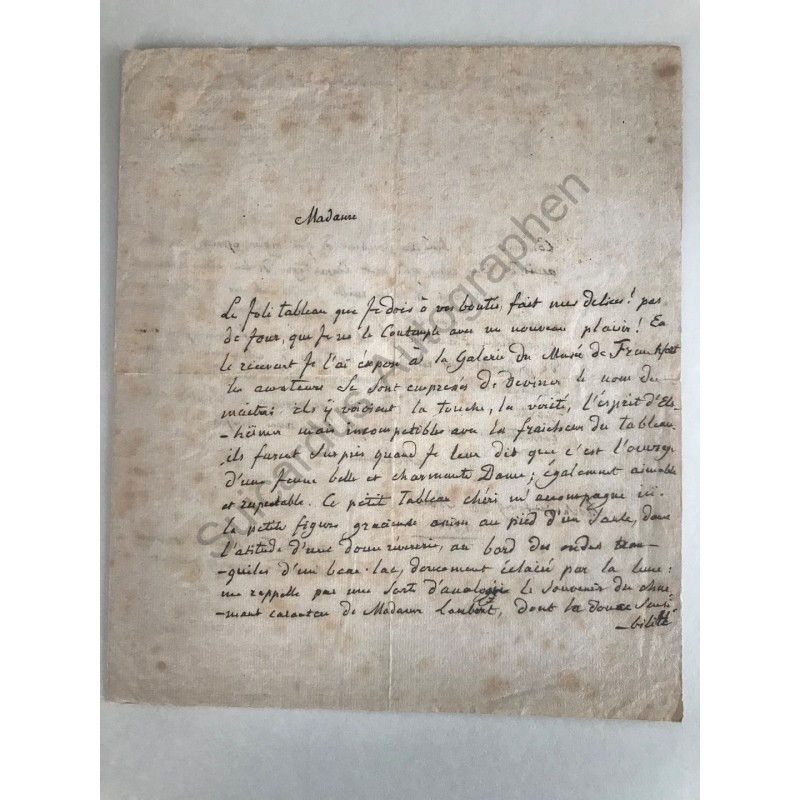 Madame
Le Joli tableau que Je dois à vos boutés, fait mes delices! pas
de Jour, que Je ne le Contemple avec un nouveau plaisir! En
le recevant Je l'ai exposé à la Galerie du Musée de Frankfort
les amateurs se sont empressés de deviner le nom du
maitre; ils y voioient la touche, la vérité, l'ésprit d'Els-
-häimer mais incompatibles avec la fraicheur du tableau.
ils furent surpris quand Je leur dis que c'est l'ouvrage
d'une Jeune belle et charmante Dame; également aimable
et respectable. Ce petit Tableau chéri m'accompagne ici.
la petite figure gracieuse assise au pied d'un Saule, dans
l'atitude d'une douce rêverie, au bord des ondes tran-
-quiles d'un beau-lac, doucement éclairé par la lune:
me rappelle par une sorte d'analogie le souvenir du char-
-mant caractere de Madame Lambert, dont la douce sensi-
-bilité
Sucardus Autographen